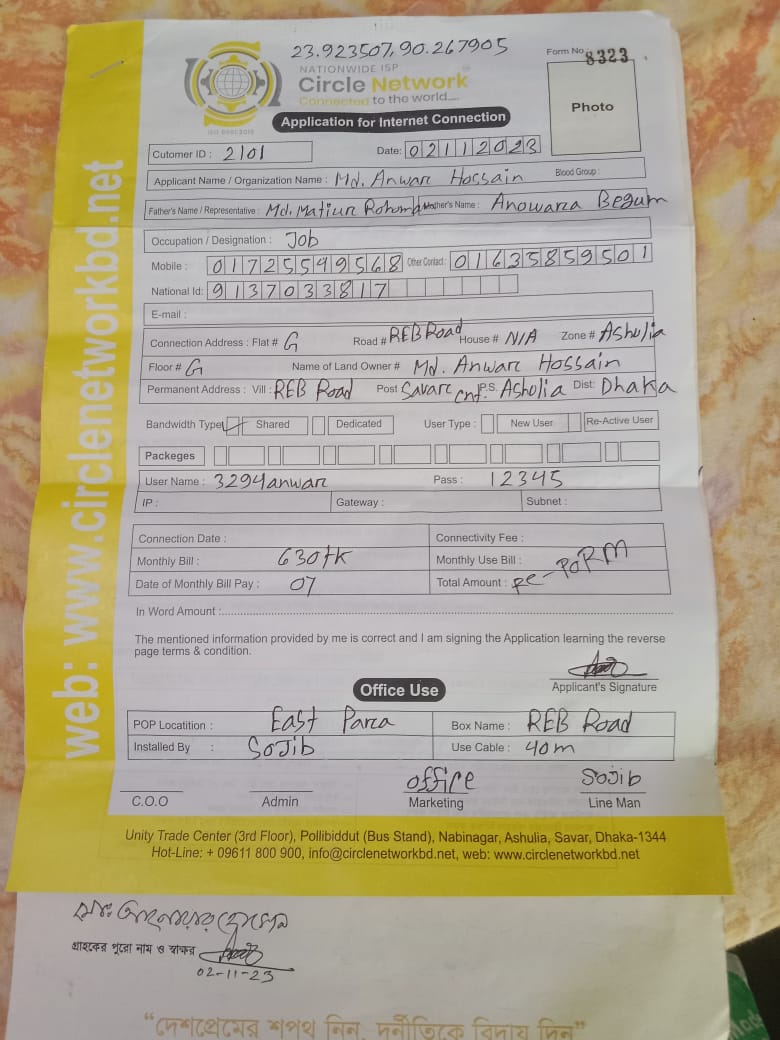 23.923507,90.267905
Form No. 8323
NATIONWIDE ISP
Circle Network
Connected to the world....
ISO 9001:2015
Photo
Application for Internet Connection
Cutomer ID : 2101 Date: 02112023
Applicant Name / Organization Name : Md. Anwar Hossain Blood Group :
Father's Name / Representative : Md. Matiur Rohoman Mother's Name : Anowara Begum
Occupation / Designation : Job
Mobile : 01725549568 Other Contact : 01635859501
National Id: 9137033817
E-mail :
Connection Address : Flat # G Road # REB Road House # N/A Zone # Ashulia
Floor # G Name of Land Owner # Md. Anwar Hossain
Permanent Address : Vill : REB Road Post Savar Cnt. P.S. Asholia Dist: Dhaka
Bandwidth Type Shared Dedicated User Type : New User Re-Active User
Packeges
User Name : 3294anwar Pass : 12345
IP : Gateway : Subnet :
Connection Date : Connectivity Fee :
Monthly Bill : 630tk Monthly Use Bill :
Date of Monthly Bill Pay : 07 Total Amount : Re-PoRM
In Word Amount :
The mentioned information provided by me is correct and I am signing the Application learning the reverse
page terms & condition.
Applicant's Signature
Office Use
POP Locatition : East Para Box Name : REB Road
Installed By : SoJib Use Cable : 40m
office Sojib
C.O.O Admin Marketing Line Man
Unity Trade Center (3rd Floor), Pollibiddut (Bus Stand), Nabinagar, Ashulia, Savar, Dhaka-1344
Hot-Line: + 09611 800 900, info@circlenetworkbd.net, web: www.circlenetworkbd.net
web: www.circlenetworkbd.net
মোঃ আনোয়ার হোসেন
গ্রাহকের পুরো নাম ও স্বাক্ষর
02-11-23
“দেশপ্রেমের শপথ নিন, দুর্নীতিকে বিদায় দিন”